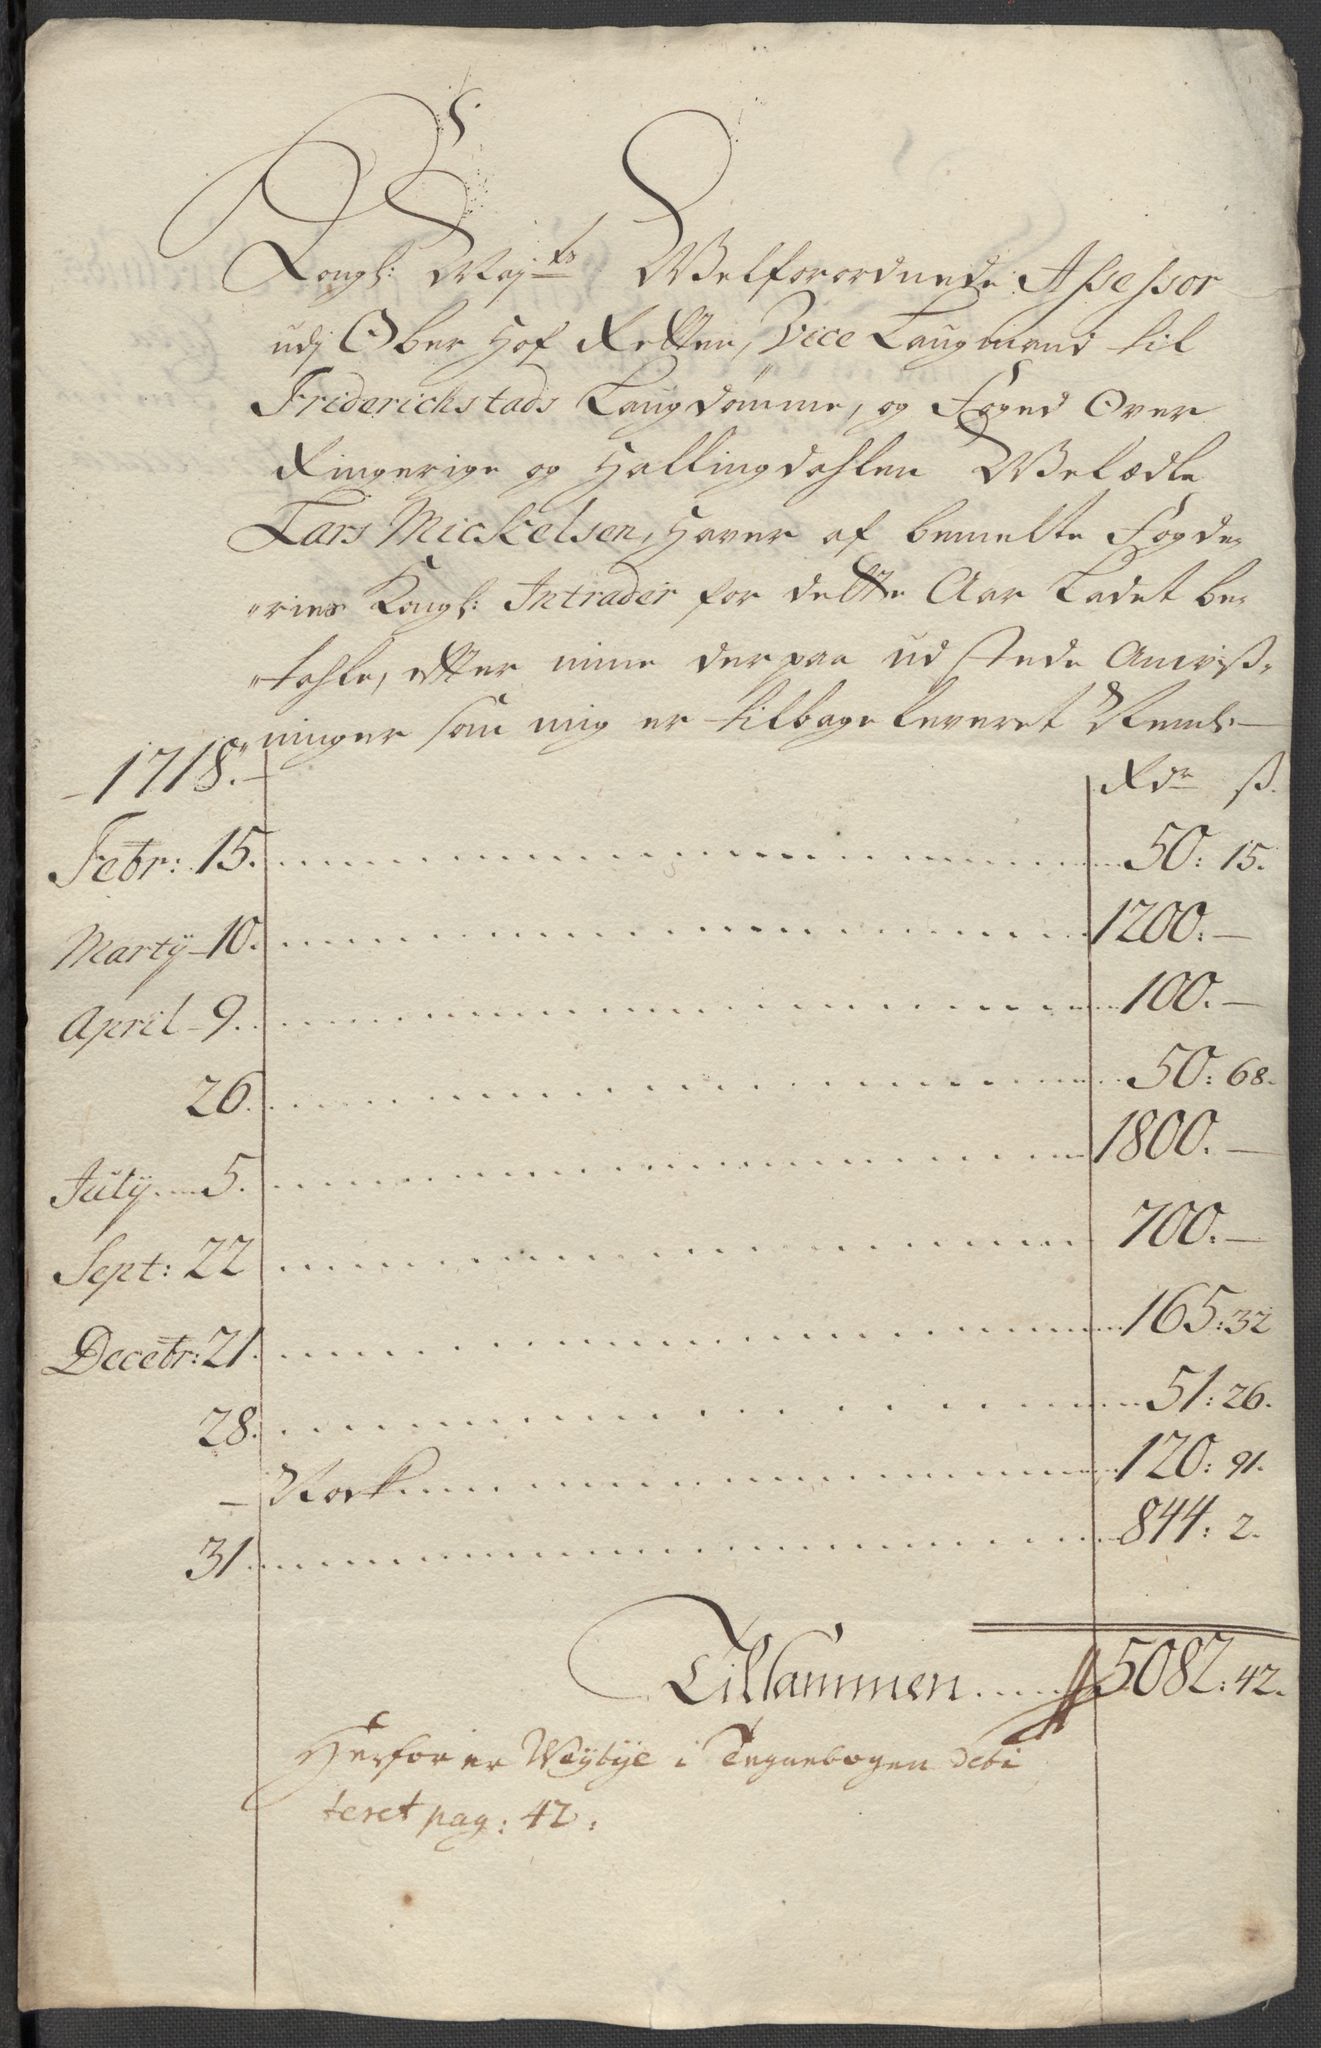 Kongl: Maj:ts Velforordnede Assessor
udj Ober Hof Retten, Vice Laugmand til
Friderichstads Laugdømme, og Foged Over
Ringerige og Hallingdahlen Velædle
Lars Mickelsen, Haver af bemelte Fogde„
„ries Kongl: Intrader for dette Aar Ladet be„
„tahle, efter mine derpaa udstæde Anviß„
„ninger som mig er tilbage leveret Neml:
1718. Rdr ß.
Febr: 15. 50: 15.
Martÿ 10. 1200: —
April 9. 100. —
26. 50: 68.
Julÿ 5. 1800. —
Sept: 22 700. —
Decebr: 21. 165: 32
28. 51: 26.
— Nock 120: 91.
31. 844: 2.
Tilsammen 5082: 42.
Herfor er Weÿbÿe i Tegnebogen debi
teret pag: 42.